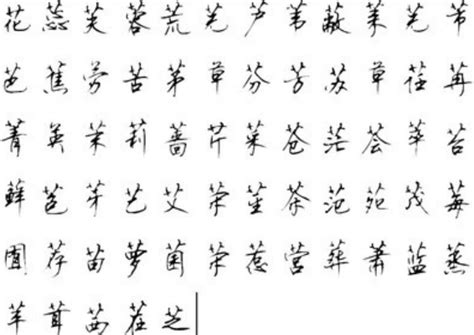 花蕊芙蓉荒芜芦苇蔽茱芜芾
芭蕉劳苦茅草芬芳苏草荏苒
菁英茉莉蔷芹茱苍茫荟萃苔
藓芭芽艺艾荣茔茶范苑茂莓
荐苗萝菌荣惹营葬萧蓝蒸
羊茸茜茬芝